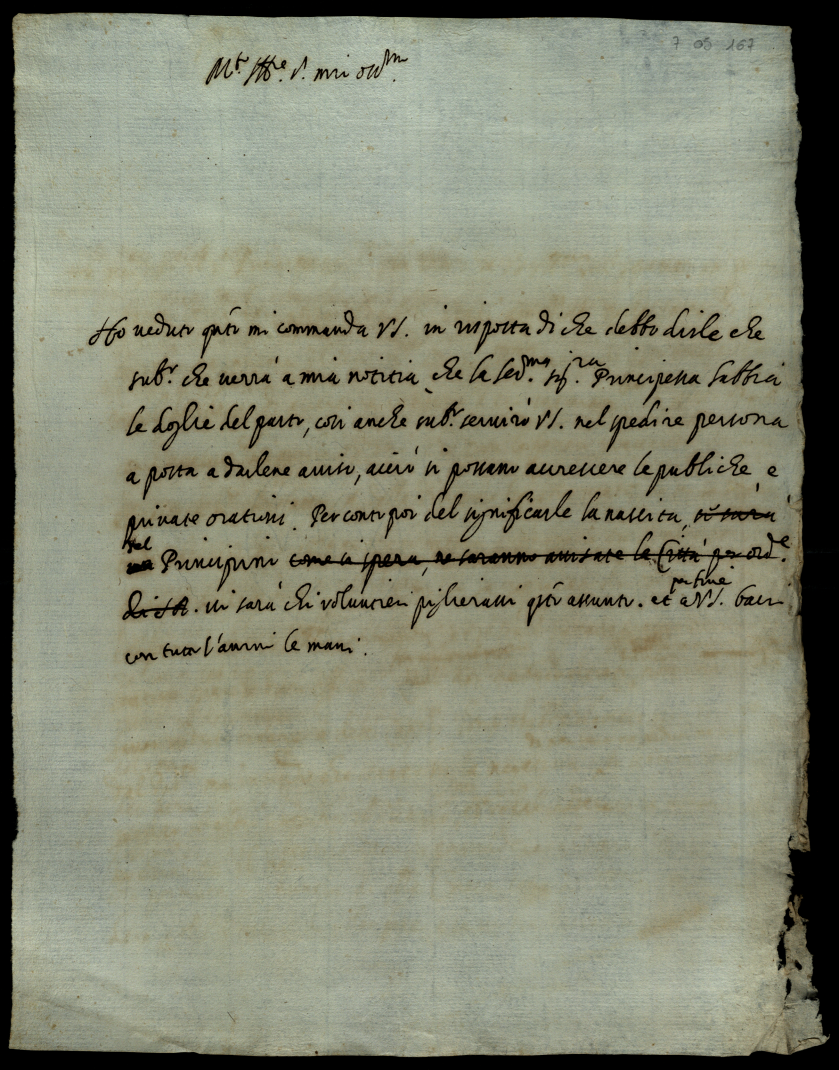 7 05 167
M.to Ill.re S.r mio oss.mo
Ho veduto q.to mi commanda VS. in risposta di che debbo dirle che
sub.o che verrà a mia notitia, che la Ser.ma Sig.ra Principessa habbia
le doglie del parto, così anche sub.o servirò VS. nel spedire persona
a posta a darlene aviso, acciò si possano accrescere le publiche, e
private orationi. Per conto poi del significarle la nascita, si sarà
del Principino come si spera, ne saranno avisate la Città per ord.e
di SA. vi sarà chi voluntieri piglierassi q.to assunto. et per fine a VS. bacio
con tutto l'animo le mani.